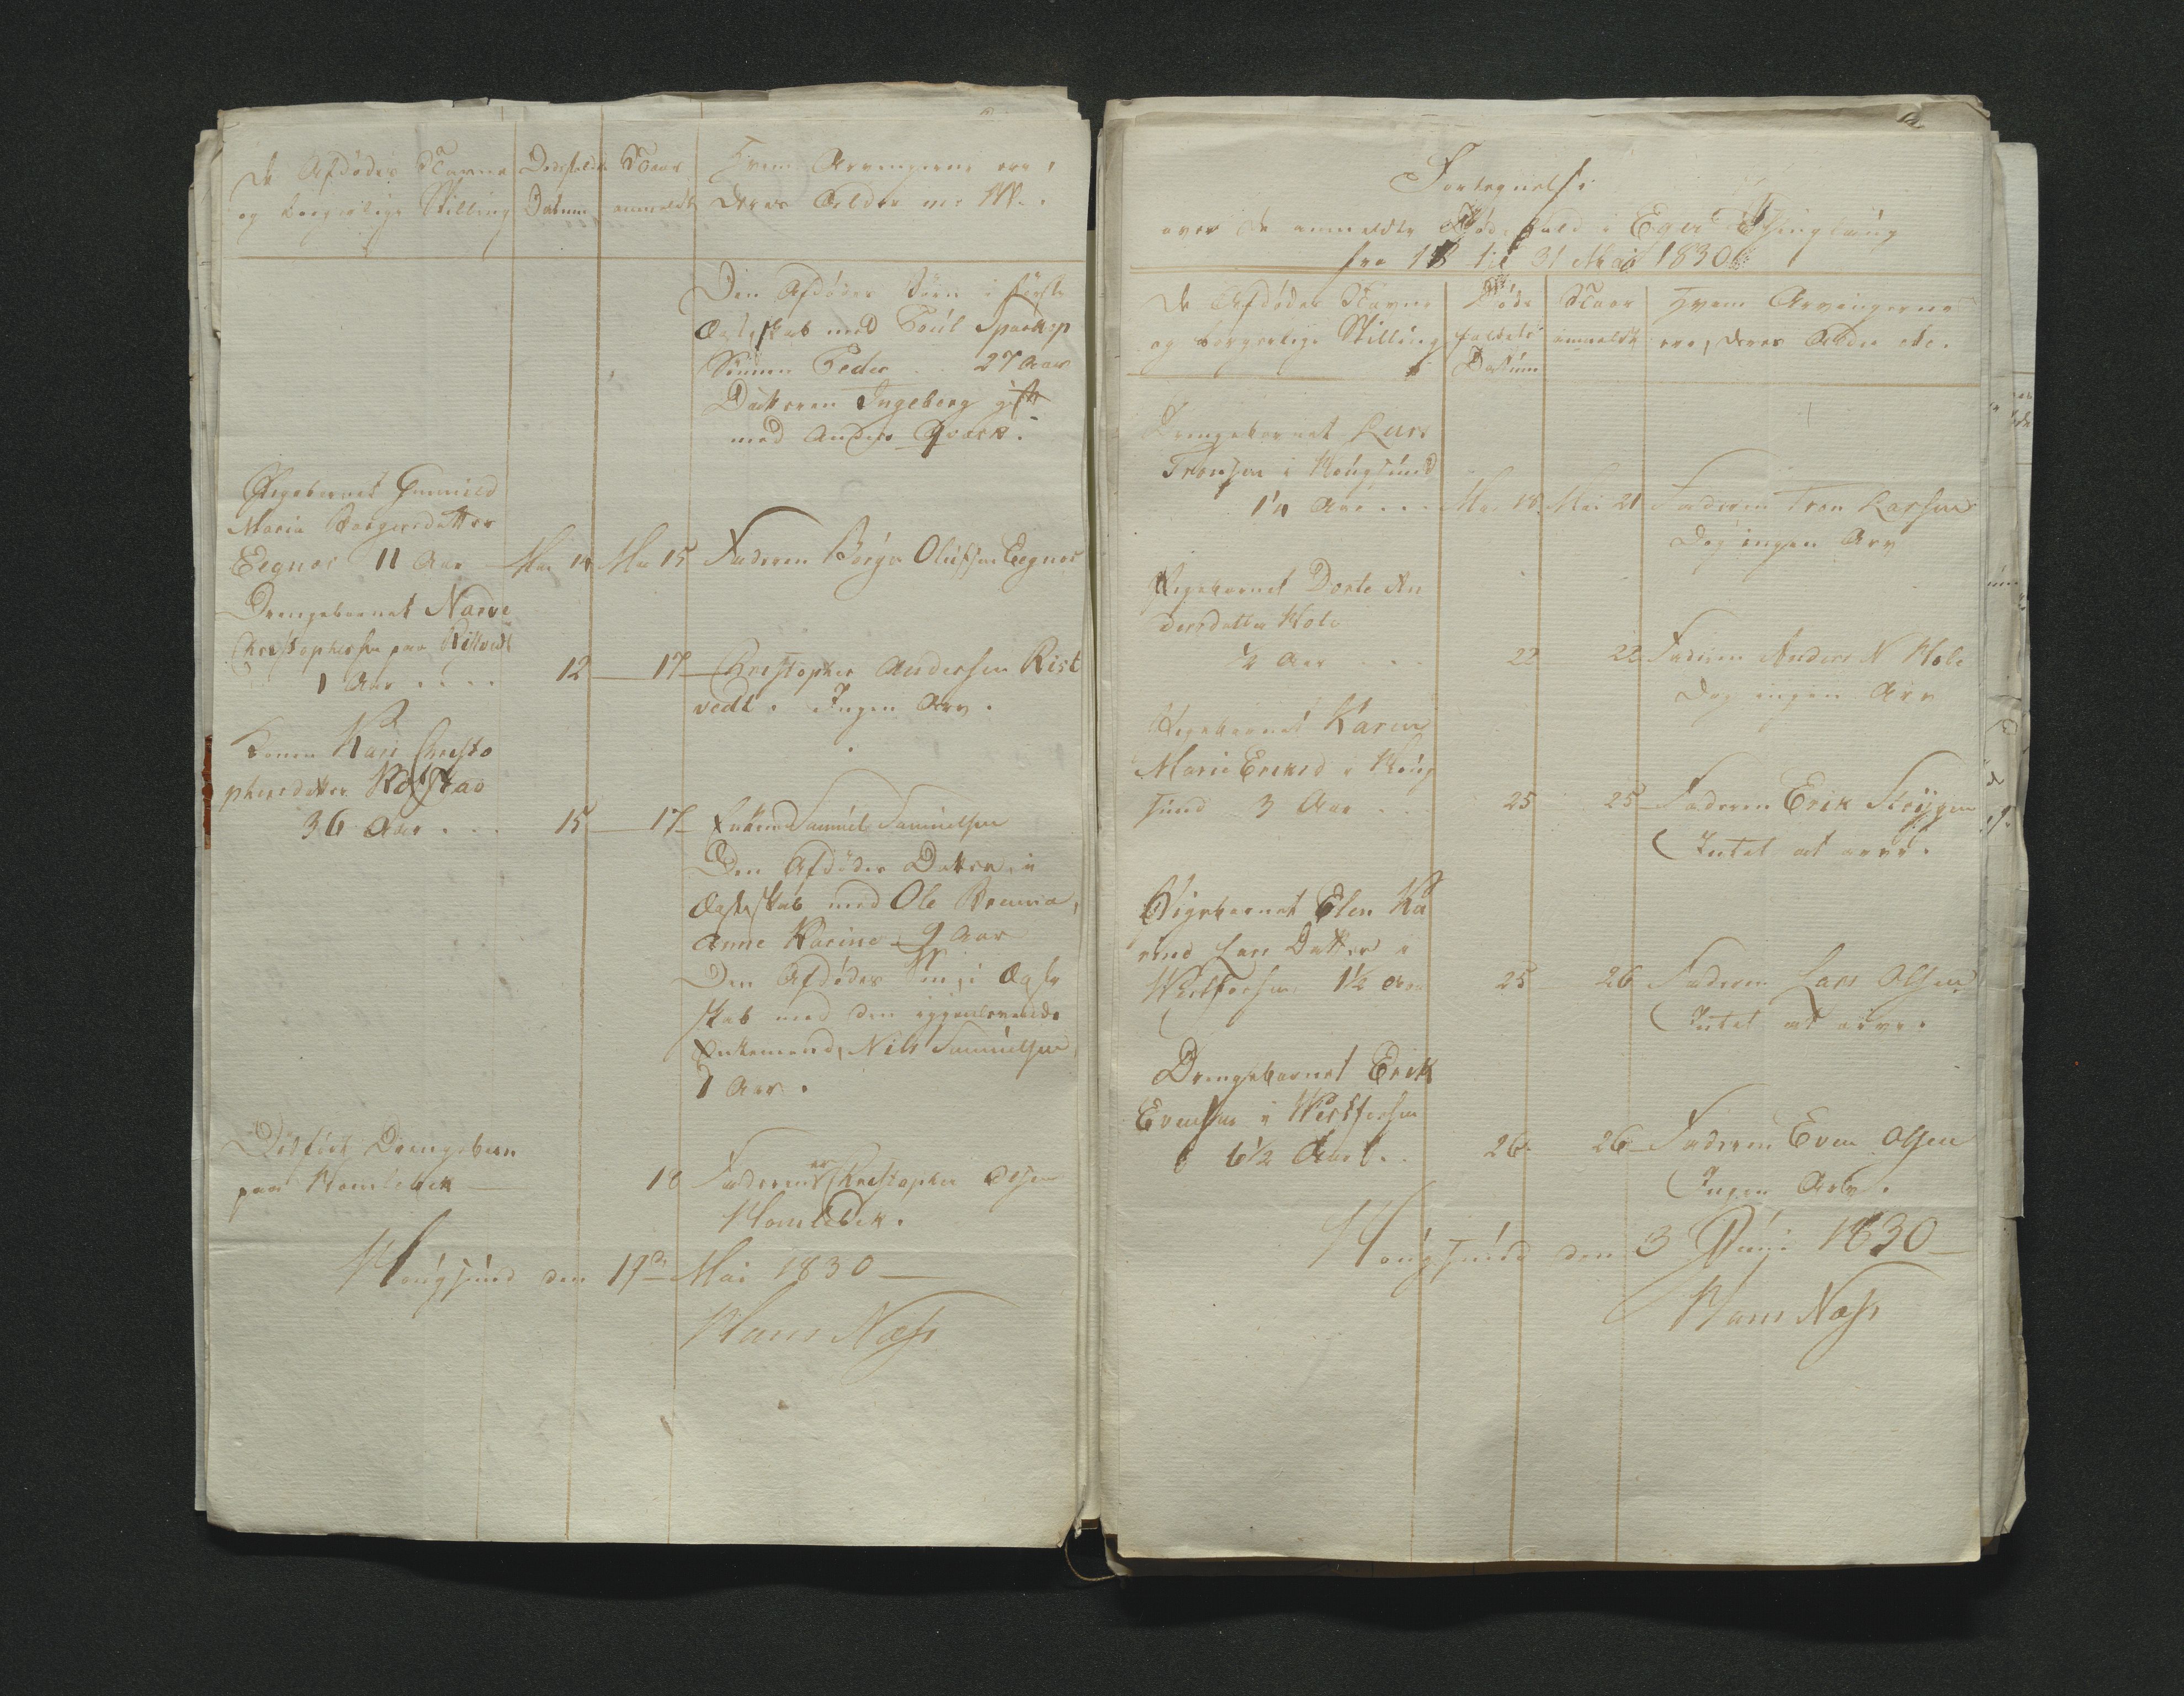 De Afdødes Navne
og borgerlige Stilling
Dødsfaldets
Datum
Naar
anmeldt
Hvem Arvingerne ere,
deres Alder m: M:
Den Afdødes Børn i første
Ægteskab med Poul
Sønnen Peder 27 Aar
Datteren Ingeborg gift
med Anders Qværk.
Pigebarnet Gunnild
Maria Borgersdatter
Eegnes 11 Aar Mai 14 Mai 15 Faderen Børger Olufsen Eegnes
Drengebarnet Narve
Christophersen paa Ristvedt
1 Aar . . . 12 17 Christopher Andersen Rist
vedt. Ingen Arv.
Konen Kari Christo
phersdatter
36 Aar . . . 15 17 Enkem Samuel Samuelsen
Den Afdødes Datter i
Ægteskab med Ole
Anne Karine 9 Aar
Den Afdødes Søn i Ægte
skab med den igjenlevende
Enkemand, Nils Samuelsen
1 Aar.
Dødfødt Drengebarn
paa Homlebek 18 Faderen er Christopher Olsen
Homlebek.
Hougsund den 19de Mai 1830
Hans Næss
Fortegnelse
over de anmeldte Dødsfald i Eger Thinglaug
fra 18 til 31 Mai 1830
De Afdødes Navne
og borgerlige Stilling
Døds
faldets
Datum
Naar
anmeldt
Hvem Arvingerne
ere, deres Alder etc.
Drengebarnet Lars
Tronsen i Hougsund
1¼ Aar . . . Mai 18 Mai 21 Faderen Tron Larsen
Dog ingen Arv
Pigebarnet Dorte An
dersdatter Hole
½ Aar 22 22 Faderen Anders N Hole
Dog ingen Arv
Pigebarnet Karen
Marie Eriksd i Houg
sund 3 Aar 25 25 Faderen Erik
Intet at arve.
Pigebarnet Elen Ka
rine Lars Datter i
Vestfossen 1½ Aar 25 26 Faderen Lars Olsen
Intet at arve.
Drengebarnet Erik
Evensen i Vestfossen
6½ Aar 26 26 Faderen Even Olsen
Ingen Arv.
Hougsund den 3 Junii 1830
Hans Næss